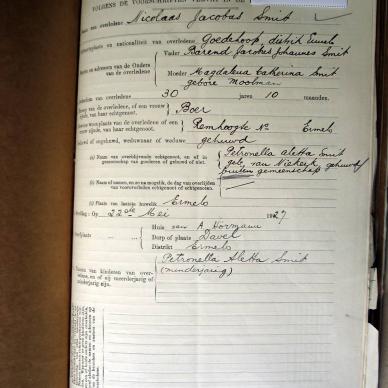 VOLGENS DE VOORSCHRIFTEN VERVAT IN DE
van overledene Nicolaas Jacobus Smit
en nationaliteit van overledene Goedehoop, distrik Ermelo
Vader Barend Jacobus Johannes Smit
en adressen van de Ouders
van de overledene
Moeder Magdalena Catherina Smit
gebore Moolman
van overledene 30 jaren 10 maanden.
van overledene, of een vrouw
zijnde, van haar echtgenoot. Boer
woonplaats van de overledene of een
vrouw zijnde, van haar echtgenoot. Remhoogte No Ermelo
of ongehuwd, weduwnaar of weduwe gehuwd
(a) Naam van overblijvende echtgenoot, en of in
gemeenschap van goederen gehuwd of niet.
Petronella Aletta Smit
geb. van Niekerk, gehuwd
buiten gemeenschap
(b) Naam of namen, en zo na mogelik, de dag van overlijden
van vooroverleden echtgenoot of echtgenoten.
(c) Plaats van laatste huwelik Ermelo
Op 22ste Mei 1927
Huis van A. Hormann
Dorp of plaats Davel
Distrikt Ermelo
Namen van kinderen van over-
ledene, en of zij meerderjarig of
minderjarig zijn.
Petronella Aletta Smit
(minderjarig)